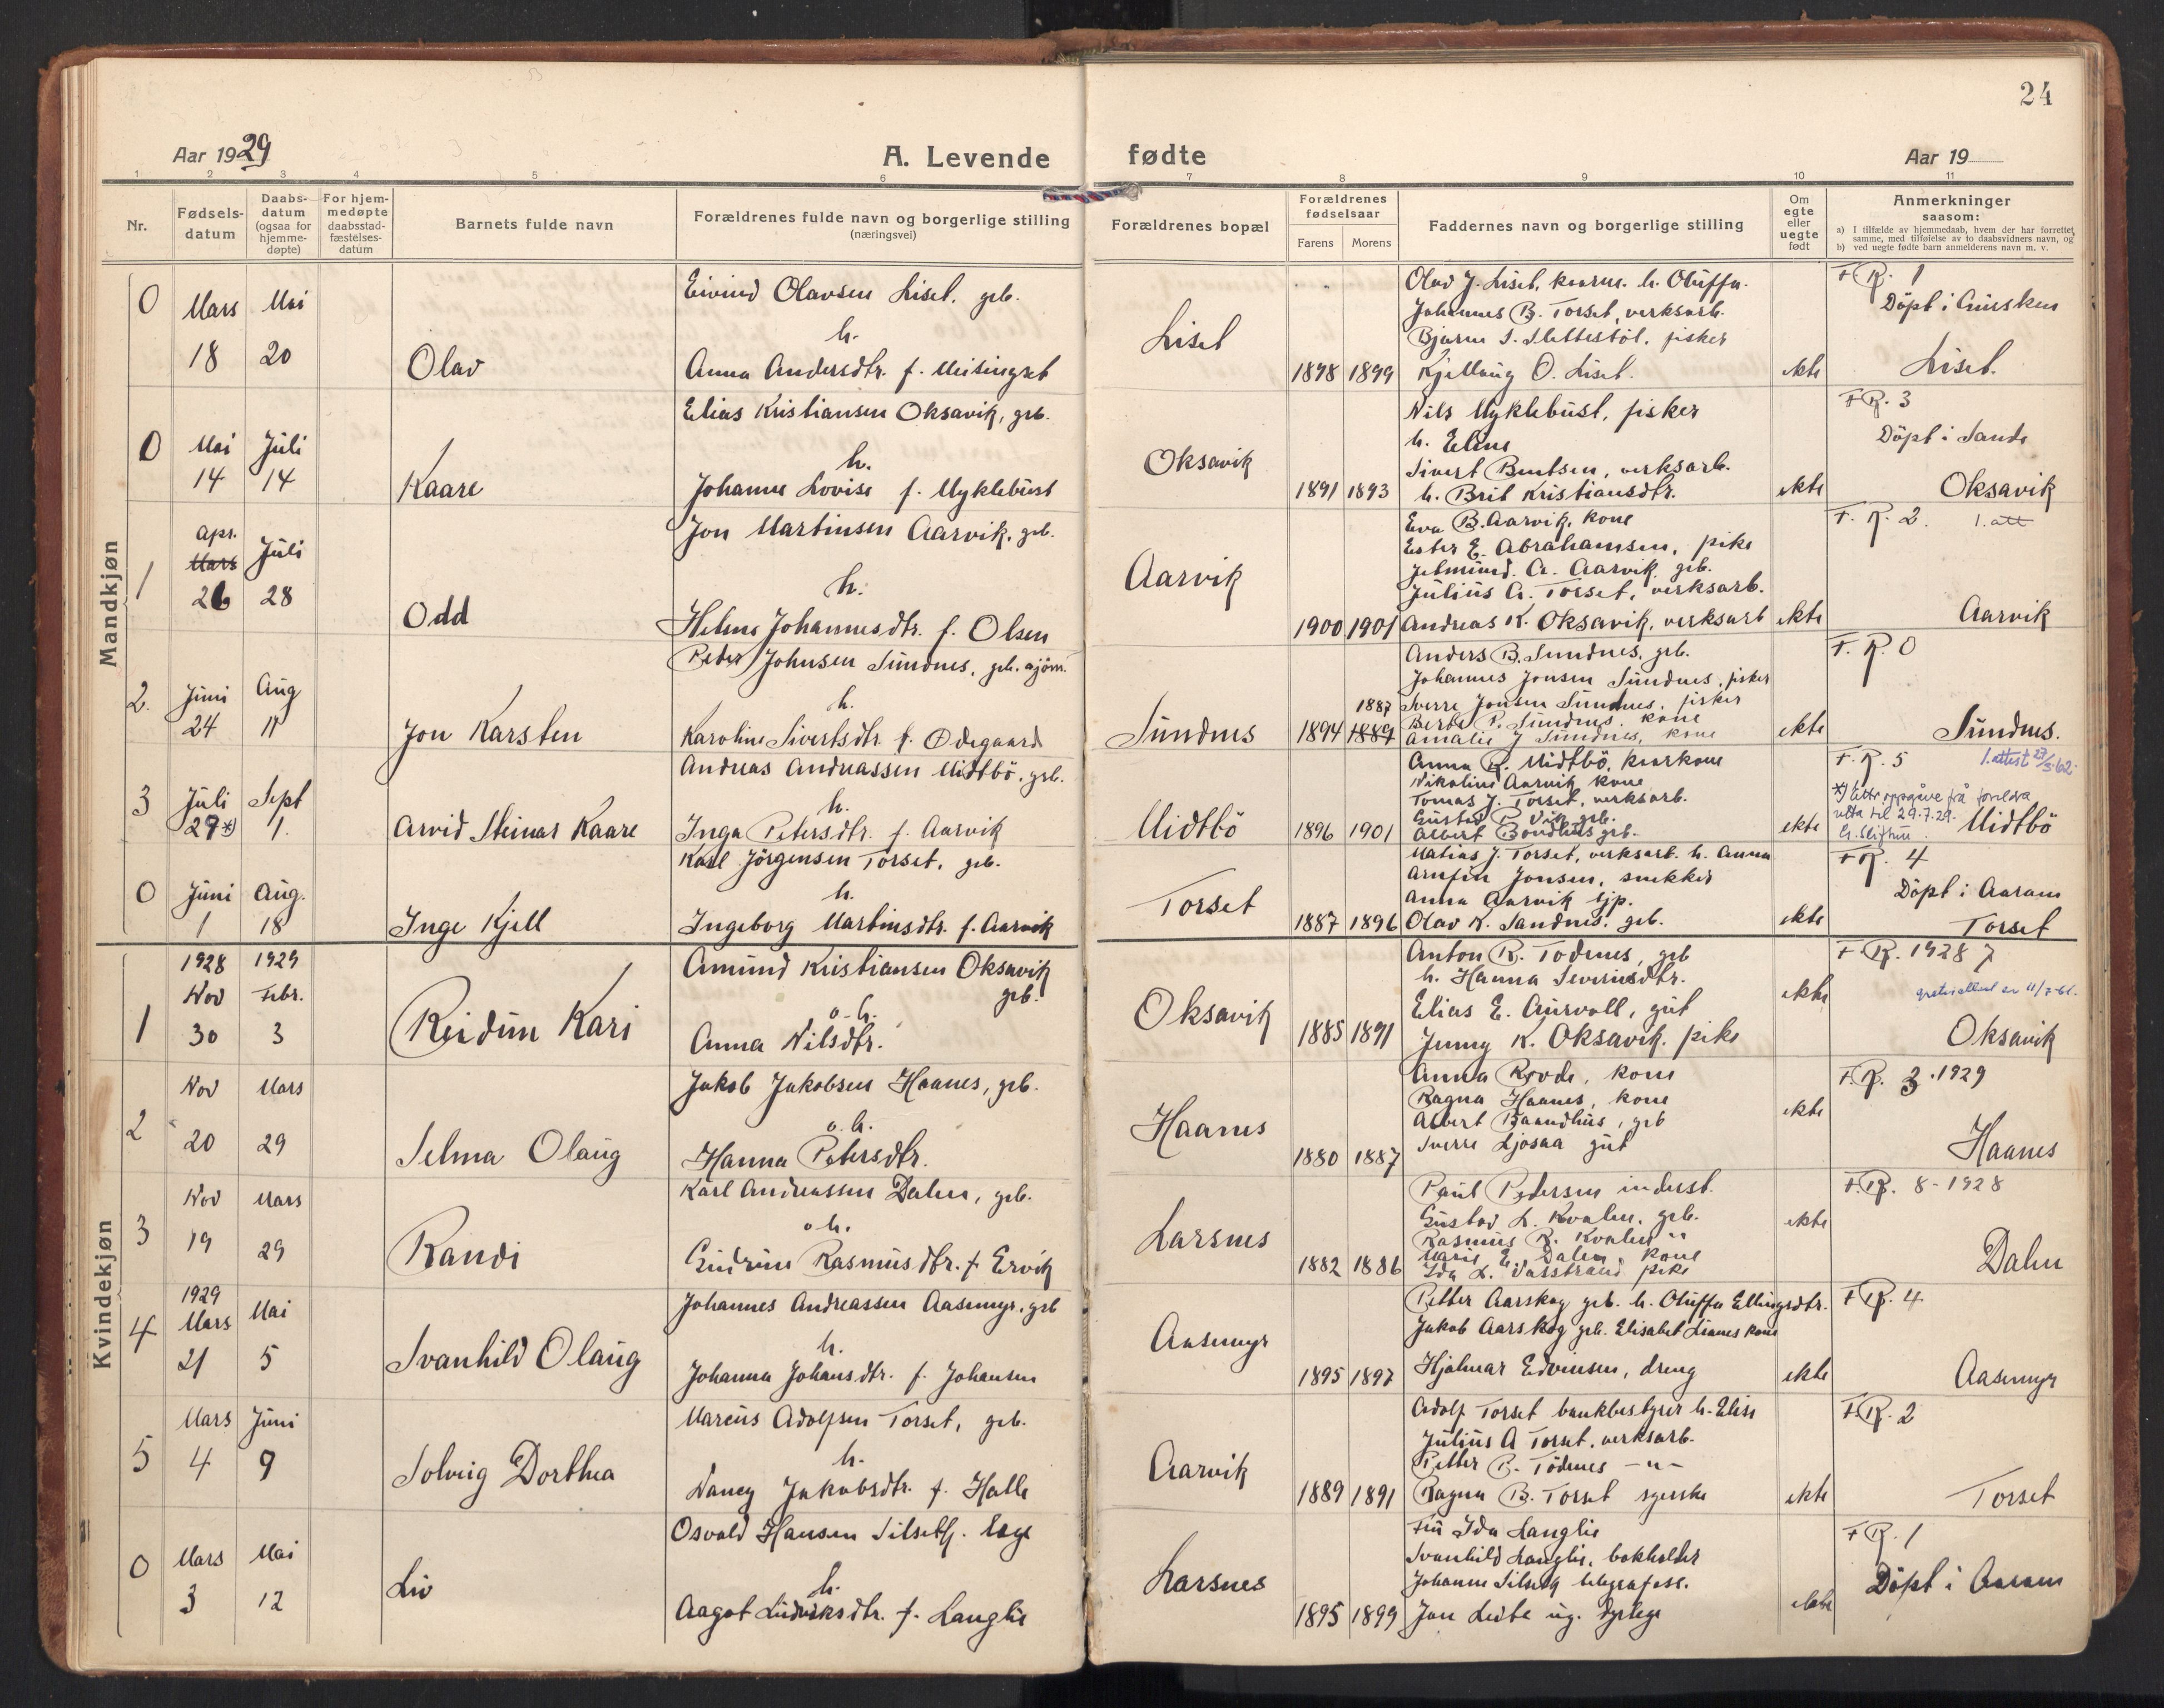 24
Aar 1929
A. Levende fødte
Aar 19
1 2 3 4 5 6 7 8 9 10 11
Nr.
Fødsels-
datum
Daabs-
datum
(ogsaa for
hjemme-
døpte)
For hjem-
medøpte
daabsstad-
fæstelses-
datum
Barnets fulde navn
Forældrenes fulde navn og borgerlige stilling
(næringsvei)
Forældrenes bopæl
Forældrenes
fødselsaar
Farens Morens
Faddernes navn og borgerlige stilling
Om
egte
eller
uegte
født
Anmerkninger
saasom:
a) I tilfælde av hjemmedaab, hvem der har forrettet
samme, med tilføielse av to daabsvidners navn, og
b) ved uegte fødte barn anmelderens navn m. v.
Mandkjøn
0
Mars Mai
18 20
Olav
Eivind Olavsen Liset, grb.
h.
Anna Andersdtr. f. Meisingset
Liset
1898 1899
Olav J. Liset, kaarm. h. Oluffa.
Johannes B. Torset, verksarb.
Bjarne S. Slettestøl, fisker
Kjellaug O. Liset.
ekte
F. R. 1
Döpt i Gursken
Liset.
0
Mai Juli
14 14
Kaare
Elias Kristiansen Oksavik, grb.
h.
Johanne Lovise f. Myklebust
Oksavik
1891 1893
Nils Myklebust, fisker
h. Eline
Sivert Bentsen, verksarb.
h. Brit Kristiansdtr.
ekte
F R. 3
Döpt i Sande
Oksavik
1
Apr.
Mars Juli
26 28
Odd
Jon Martinsen Aarvik, grb.
h.
Helene Johannesdtr. f. Olsen
Aarvik
1900 1901
Eva B. Aarvik, kone
Ester E. Abrahamsen, pike
Jetmund A. Aarvik grb.
Julius A. Torset, verksarb.
Andreas K. Oksavik, verksarb
ekte
F. R. 2. 1. att
Aarvik
2.
Juni Aug
24 11
Jon Karsten
Peder Johnsen Sundnes, grb. sjöm.
h.
Karoline Sivertsdtr. f. Ødegaard
Sundnes
1887
1894 1889
Anders B. Sundnes, grb.
Johannes Jonsen Sundnes, fisker
Sverre Jonsen Sundnes, fisker
Berte P. Sundnes, kone
Amalie J Sundnes, kone
ekte
F. R. 0
Sundnes.
3
Juli Sept
29*) 1.
Arvid Steinar Kaare
Andreas Andreassen Midtbö, grb.
h.
Inga Petersdtr. f. Aarvik
Midtbö
1896 1901
Anna R. Midtbö, kaarkone
Nikoline Aarvik kone
Tomas J. Torset, verksarb.
Gustav P. Vik grb.
Albert Bondhus grb.
ekte
F. R. 5 1. attest 27/3-62.
*) Etter oppgåve frå foreldra
retta til 29.7.29.
Midtbö
0
Juni Aug.
1 18
Inge Kjell
Karl Jörgensen Torset, grb.
h.
Ingeborg Martinsdtr. f. Aarvik
Torset
1887 1896
Matias J. Torset, verksarb. h. Anna
Arnfin Jonsen, snekker
Anna Aarvik tjp.
Olav K. Sandnes, grb.
ekte
F R. 4
Döpt i Aaram
Torset
Kvindekjøn
1
1928 1929
Nov Febr.
30 3
Reidun Kari
Amund Kristiansen Oksavik
grb.
o. h.
Anna Nilsdtr.
Oksavik
1885 1891
Anton R. Todnes, grb
h. Hanna Severinsdtr.
Elias E. Aurvoll, gut
Jenny K. Oksavik, pike
ekte
F. R. 1928 7
11/7-61.
Oksavik
2
Nov Mars
20 29
Selma Olaug
Jakob Jakobsen Haanes, grb.
o. h.
Hanna Petersdtr.
Haanes
1880 1887
Anna Rovde, kone
Ragna Haanes, kone
Albert Baandhus, grb
Sverre Ljosaa gut
ekte
F. R. 3. 1929
Haanes
3
Nov Mars
19 29
Randi
Karl Andreassen Dalen, grb.
o h.
Gudrun Rasmusdtr. f. Ervik
Larsnes
1882 1886
Paul Pedersen inderst.
Gustav L. Kvalen, grb.
Rasmus R. Kvalen "
Marie E. Dalen, kone
Ida L. Vasstrand pike
ekte
F. R. 8 - 1928
Dalen
4
1929
Mars Mai
21 5
Svanhild Olaug
Johannes Andreassen Aasemyr, grb
h.
Johanna Johansdtr. f. Johansen
Aasemyr
1895 1897
Petter Aarskog grb. h. Oluffa Ellingsdtr.
Jakob Aarskog grb. Elisabet Lianes kone
Hjalmar Edvinsen, dreng
ekte
F R. 4
Aasemyr
5
Mars Juni
4 9
Solveig Dorthea
Marcus Adolfsen Torset, grb.
h.
Nancy Jakobsdtr. f. Halle
Aarvik
1889 1891
Adolf Torset bankbestyrer h. Elise
Julius A Torset, verksarb.
Petter B. Tödnes - " -
Ragna B. Torset syerske
ekte
F. R. 2
Torset
0
Mars Mai
3 12
Liv
Osvald Hansen Silseth. læge
h.
Aagot Ludviksdtr. f. Langlie
Larsnes
1895 1899
Fru Ida Langlie
Svanhild Langlie, bokholder
Johanne Silseth telegrafass.
Jon Leite ug. dyrlege
ekte
F R. 1
Döpt i Aaram